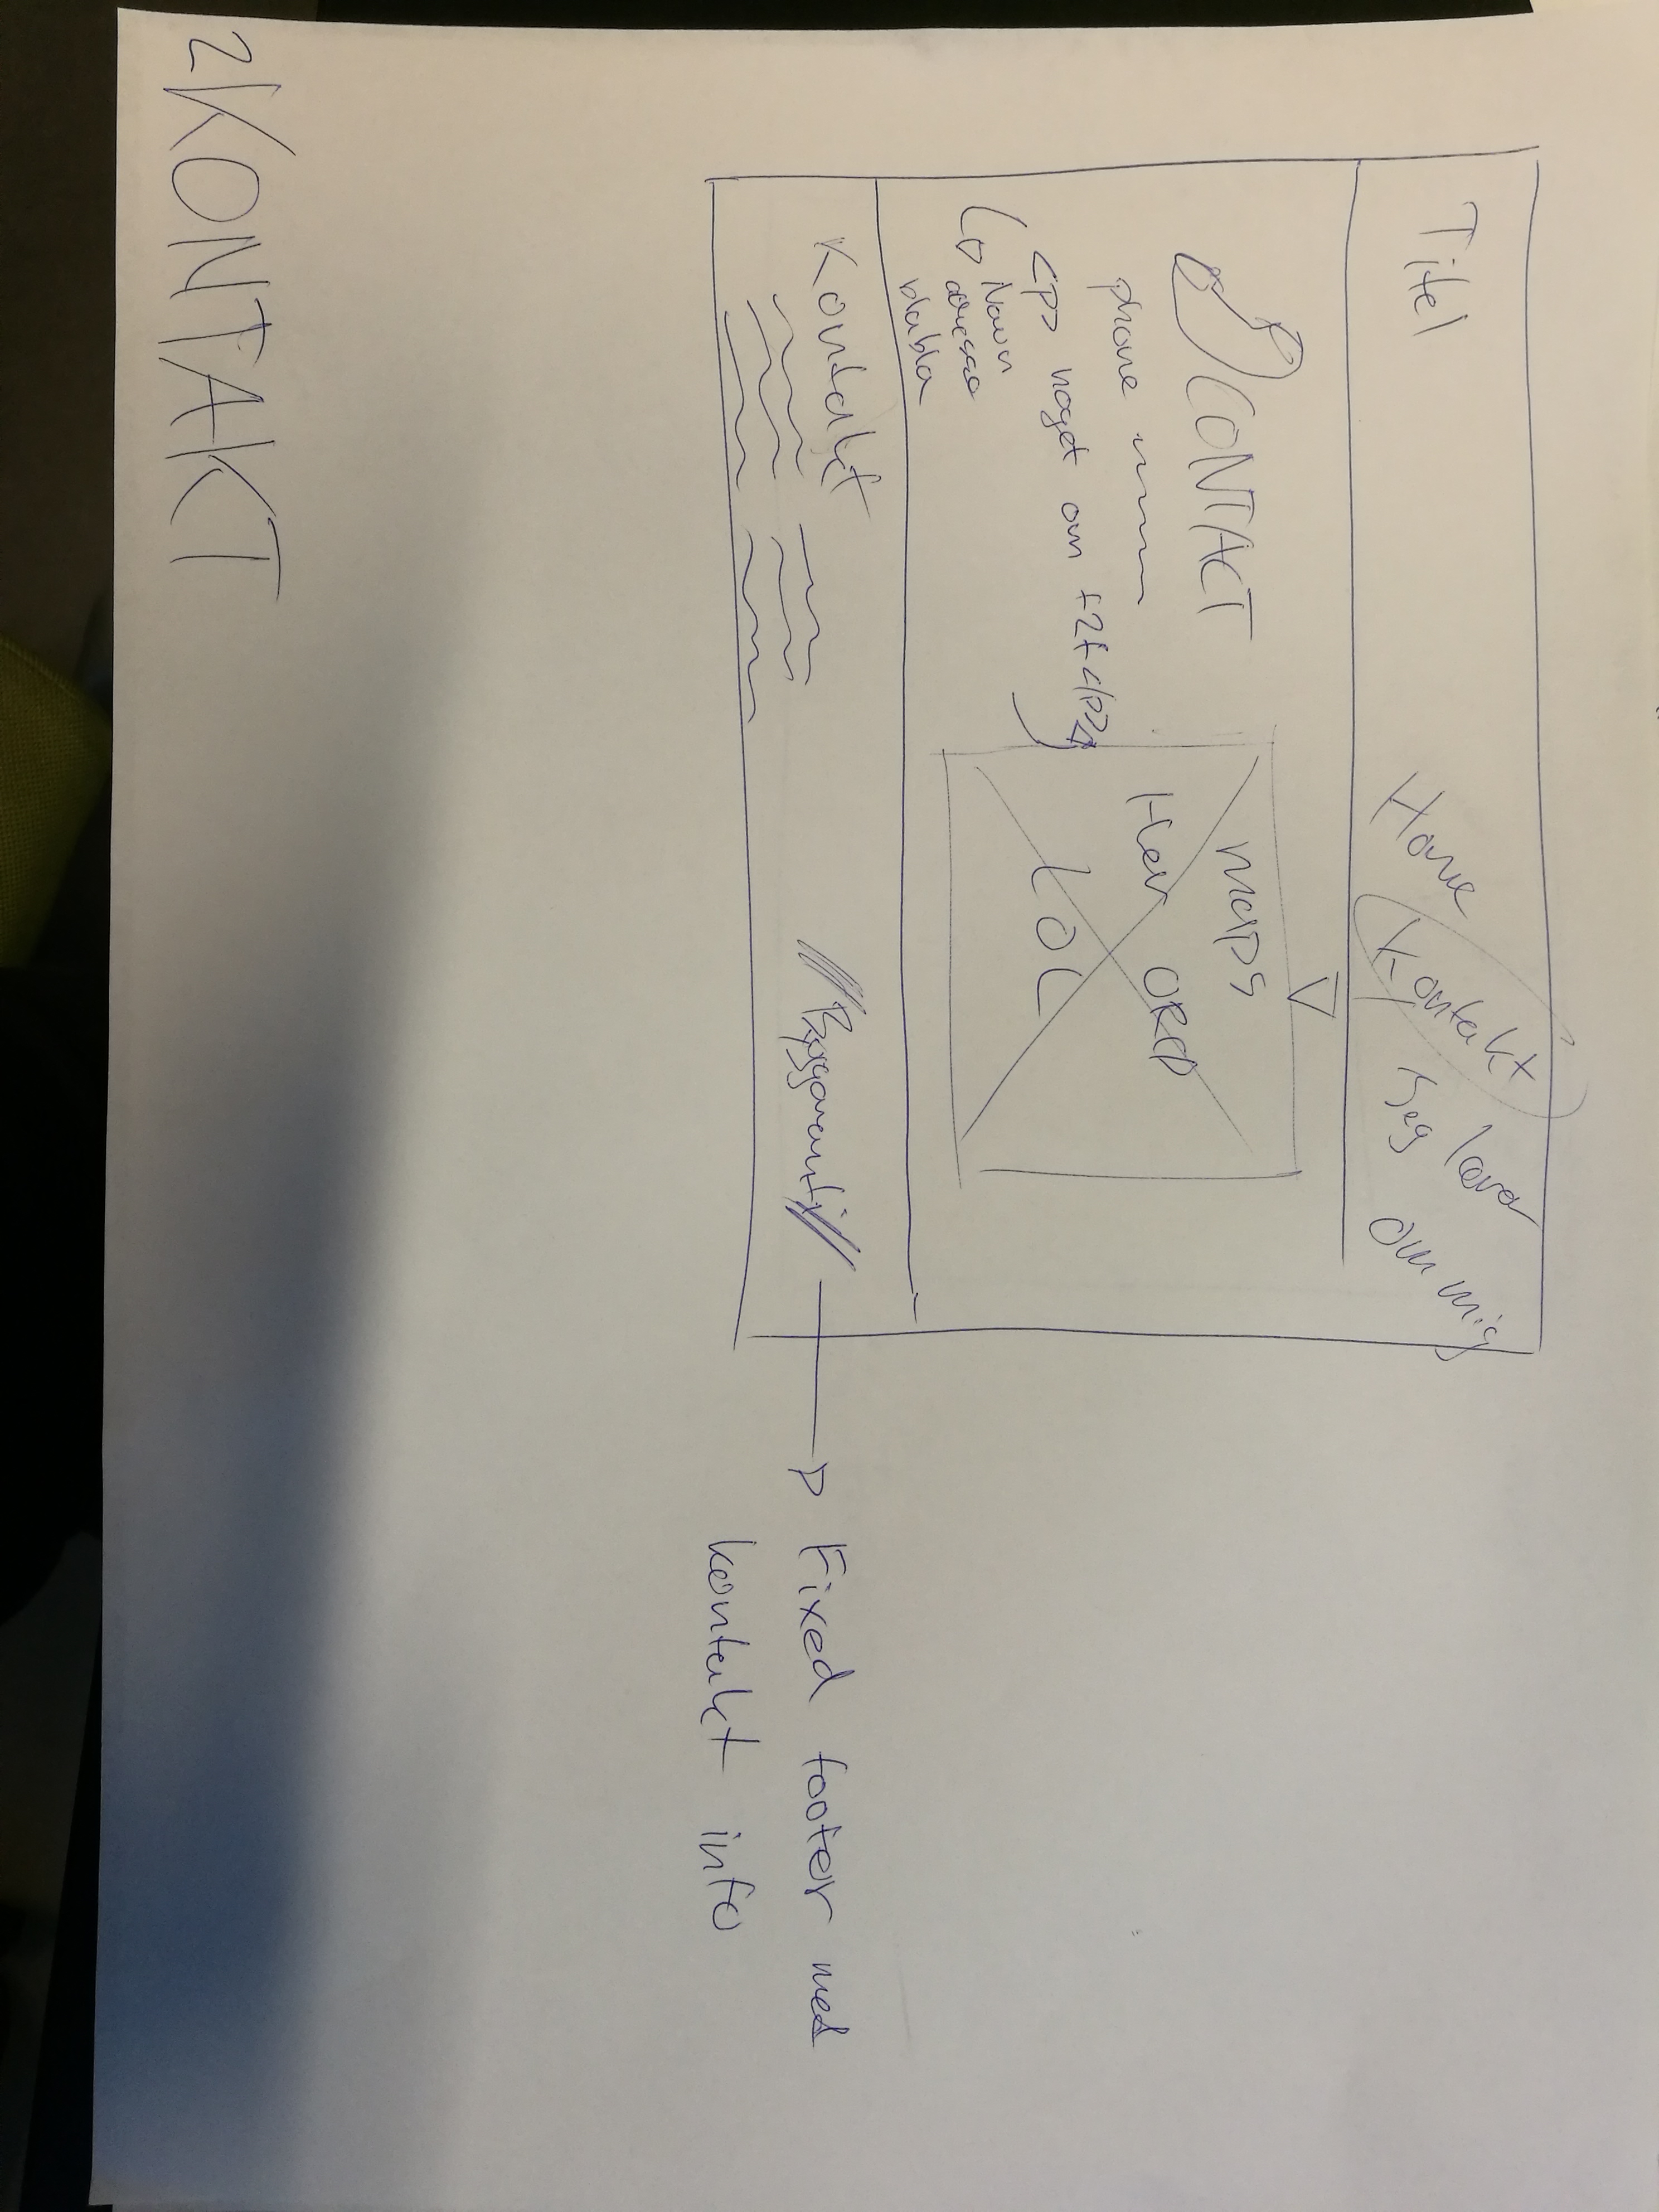 Titel Home Kontakt Jeg laver Om mig
CONTACT
phone
<p> noget om f2f </p>
Navn
adresse
blabla
MAPS
Her ORD
LOL
Kontakt
Byggaranti
Fixed footer med
kontakt info
2 KONTAKT